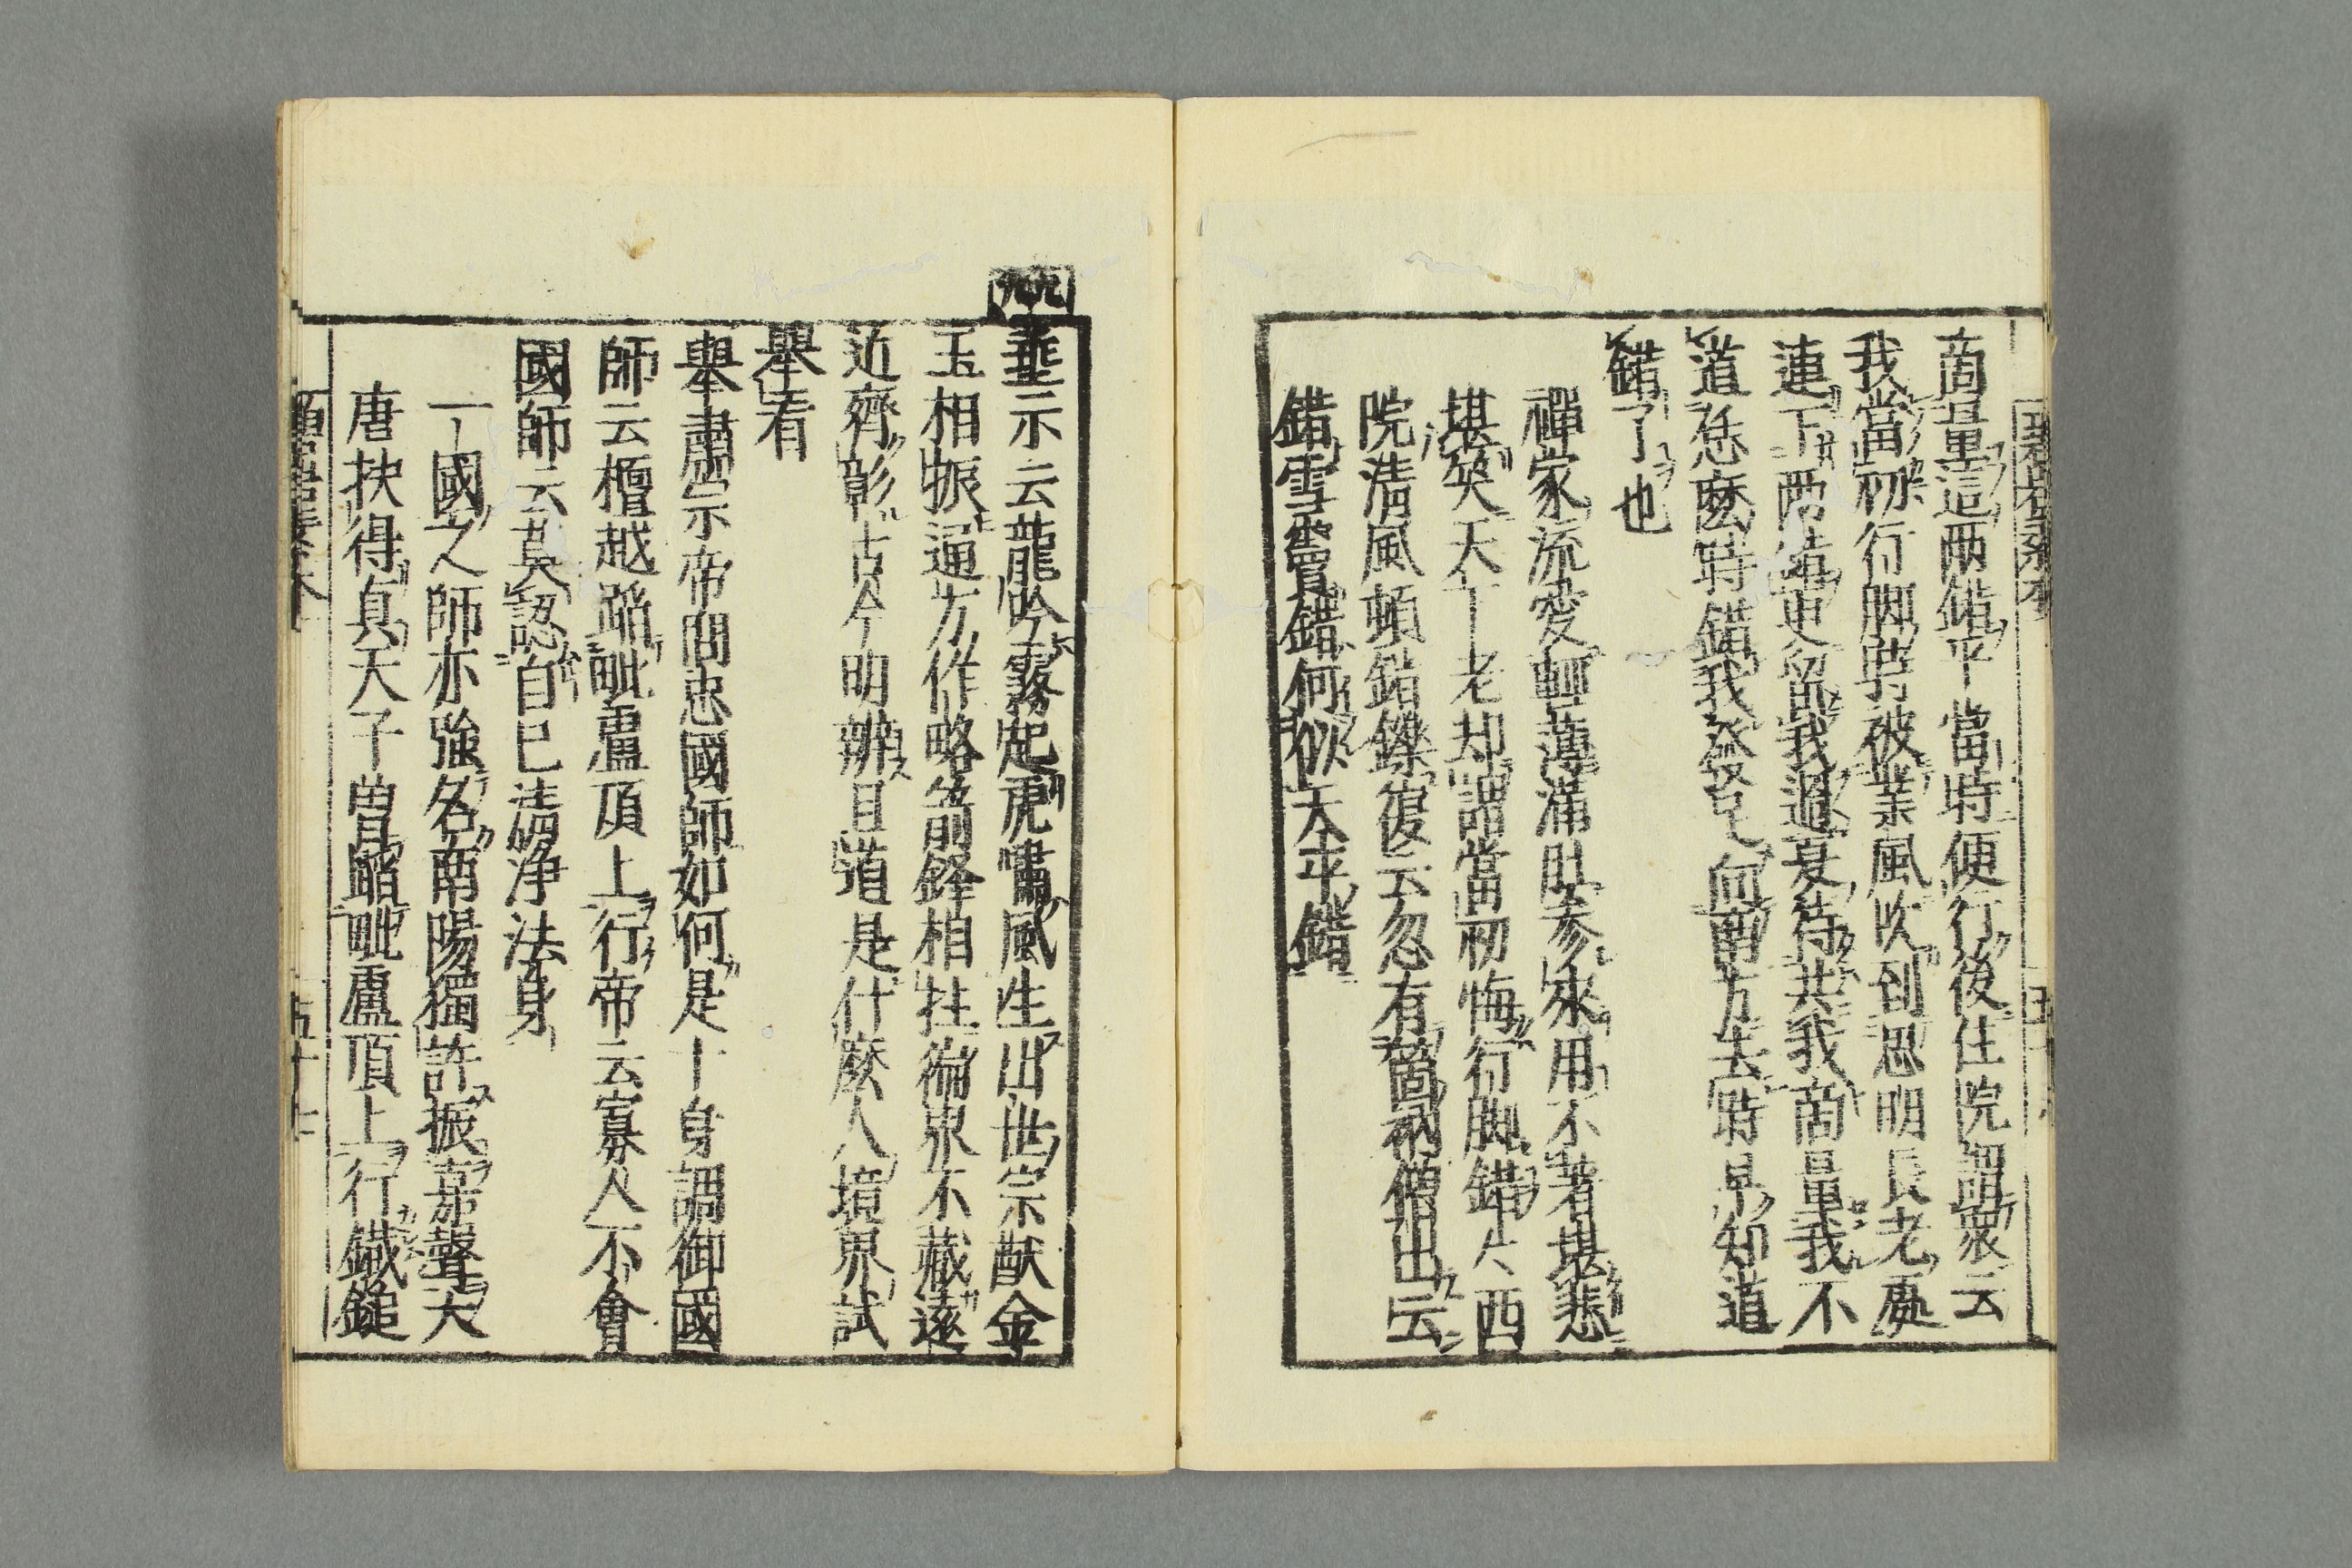 商量這兩錯平當時便行後住院謂衆云
我當初行脚時被業風吹到思明長老處
連下兩錯更留我過夏待共我商量我不
道恁麼時錯我發足向南方去時早知道
錯了也
禪家流愛輕薄滿肚參來用不著堪悲
堪笑天平老却謂當初悔行脚錯々西
院清風頓銷鑠復云忽有箇衲僧出云
錯雪竇錯何似天平錯
九九
垂示云龍吟霧起虎嘯風生出世宗猷金
玉相振通方作略箭鋒相拄徧界不藏遠
近齊彰古今明辨且道是什麼人境界試
舉看
舉肅宗帝問忠國師如何是十身調御國
師云檀越踏毗盧頂上行帝云寡人不會
國師云莫認自己清淨法身
一國之師亦強名南陽獨許振嘉聲大
唐扶得真天子曽踏毗盧頂上行鐵鎚
五十七